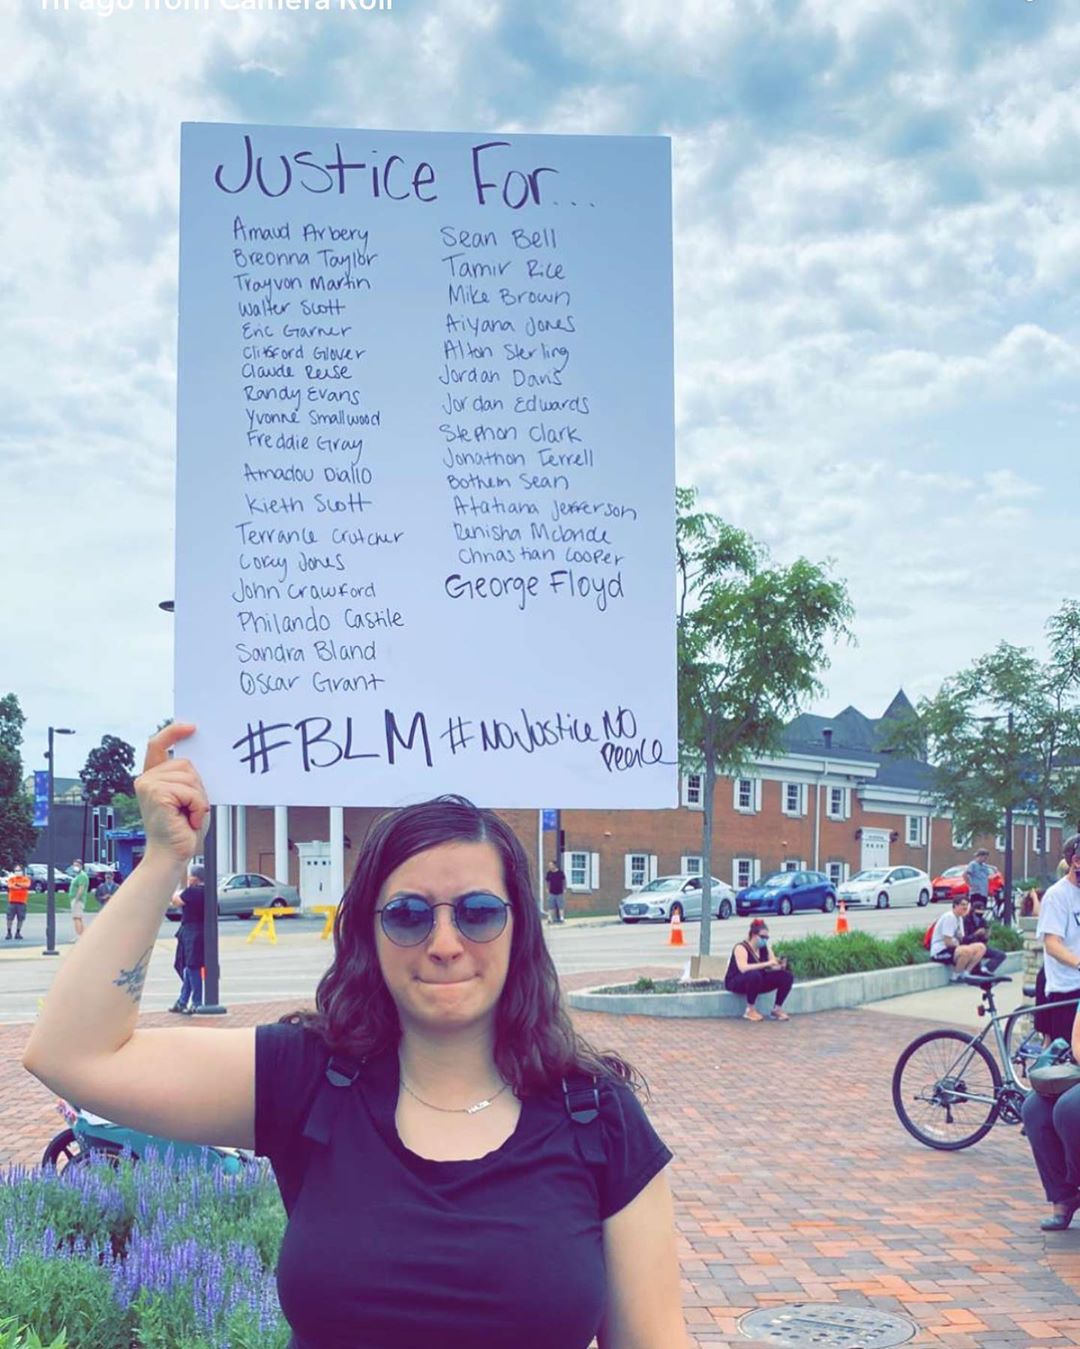 m ago from Camera Roll
Justice For...
Amaud Arbery
Breonna Taylor
Trayvon Martin
Walter Scott
Eric Garner
Clifford Glover
Claude Reise
Randy Evans
Yvonne Smallwood
Freddie Gray
Amadou Diallo
Kieth Scott
Terrance Crutcher
Corey Jones
John Crawford
Philando Castile
Sandra Bland
Oscar Grant
Sean Bell
Tamir Rice
Mike Brown
Aiyana Jones
Alton Sterling
Jordan Davis
Jordan Edwards
Stephon Clark
Jonathon Ferrell
Bothem Sean
Atatiana Jefferson
Renisha Mcbride
Chrnastian Cooper
George Floyd
#BLM #NoJustice NO
Peace